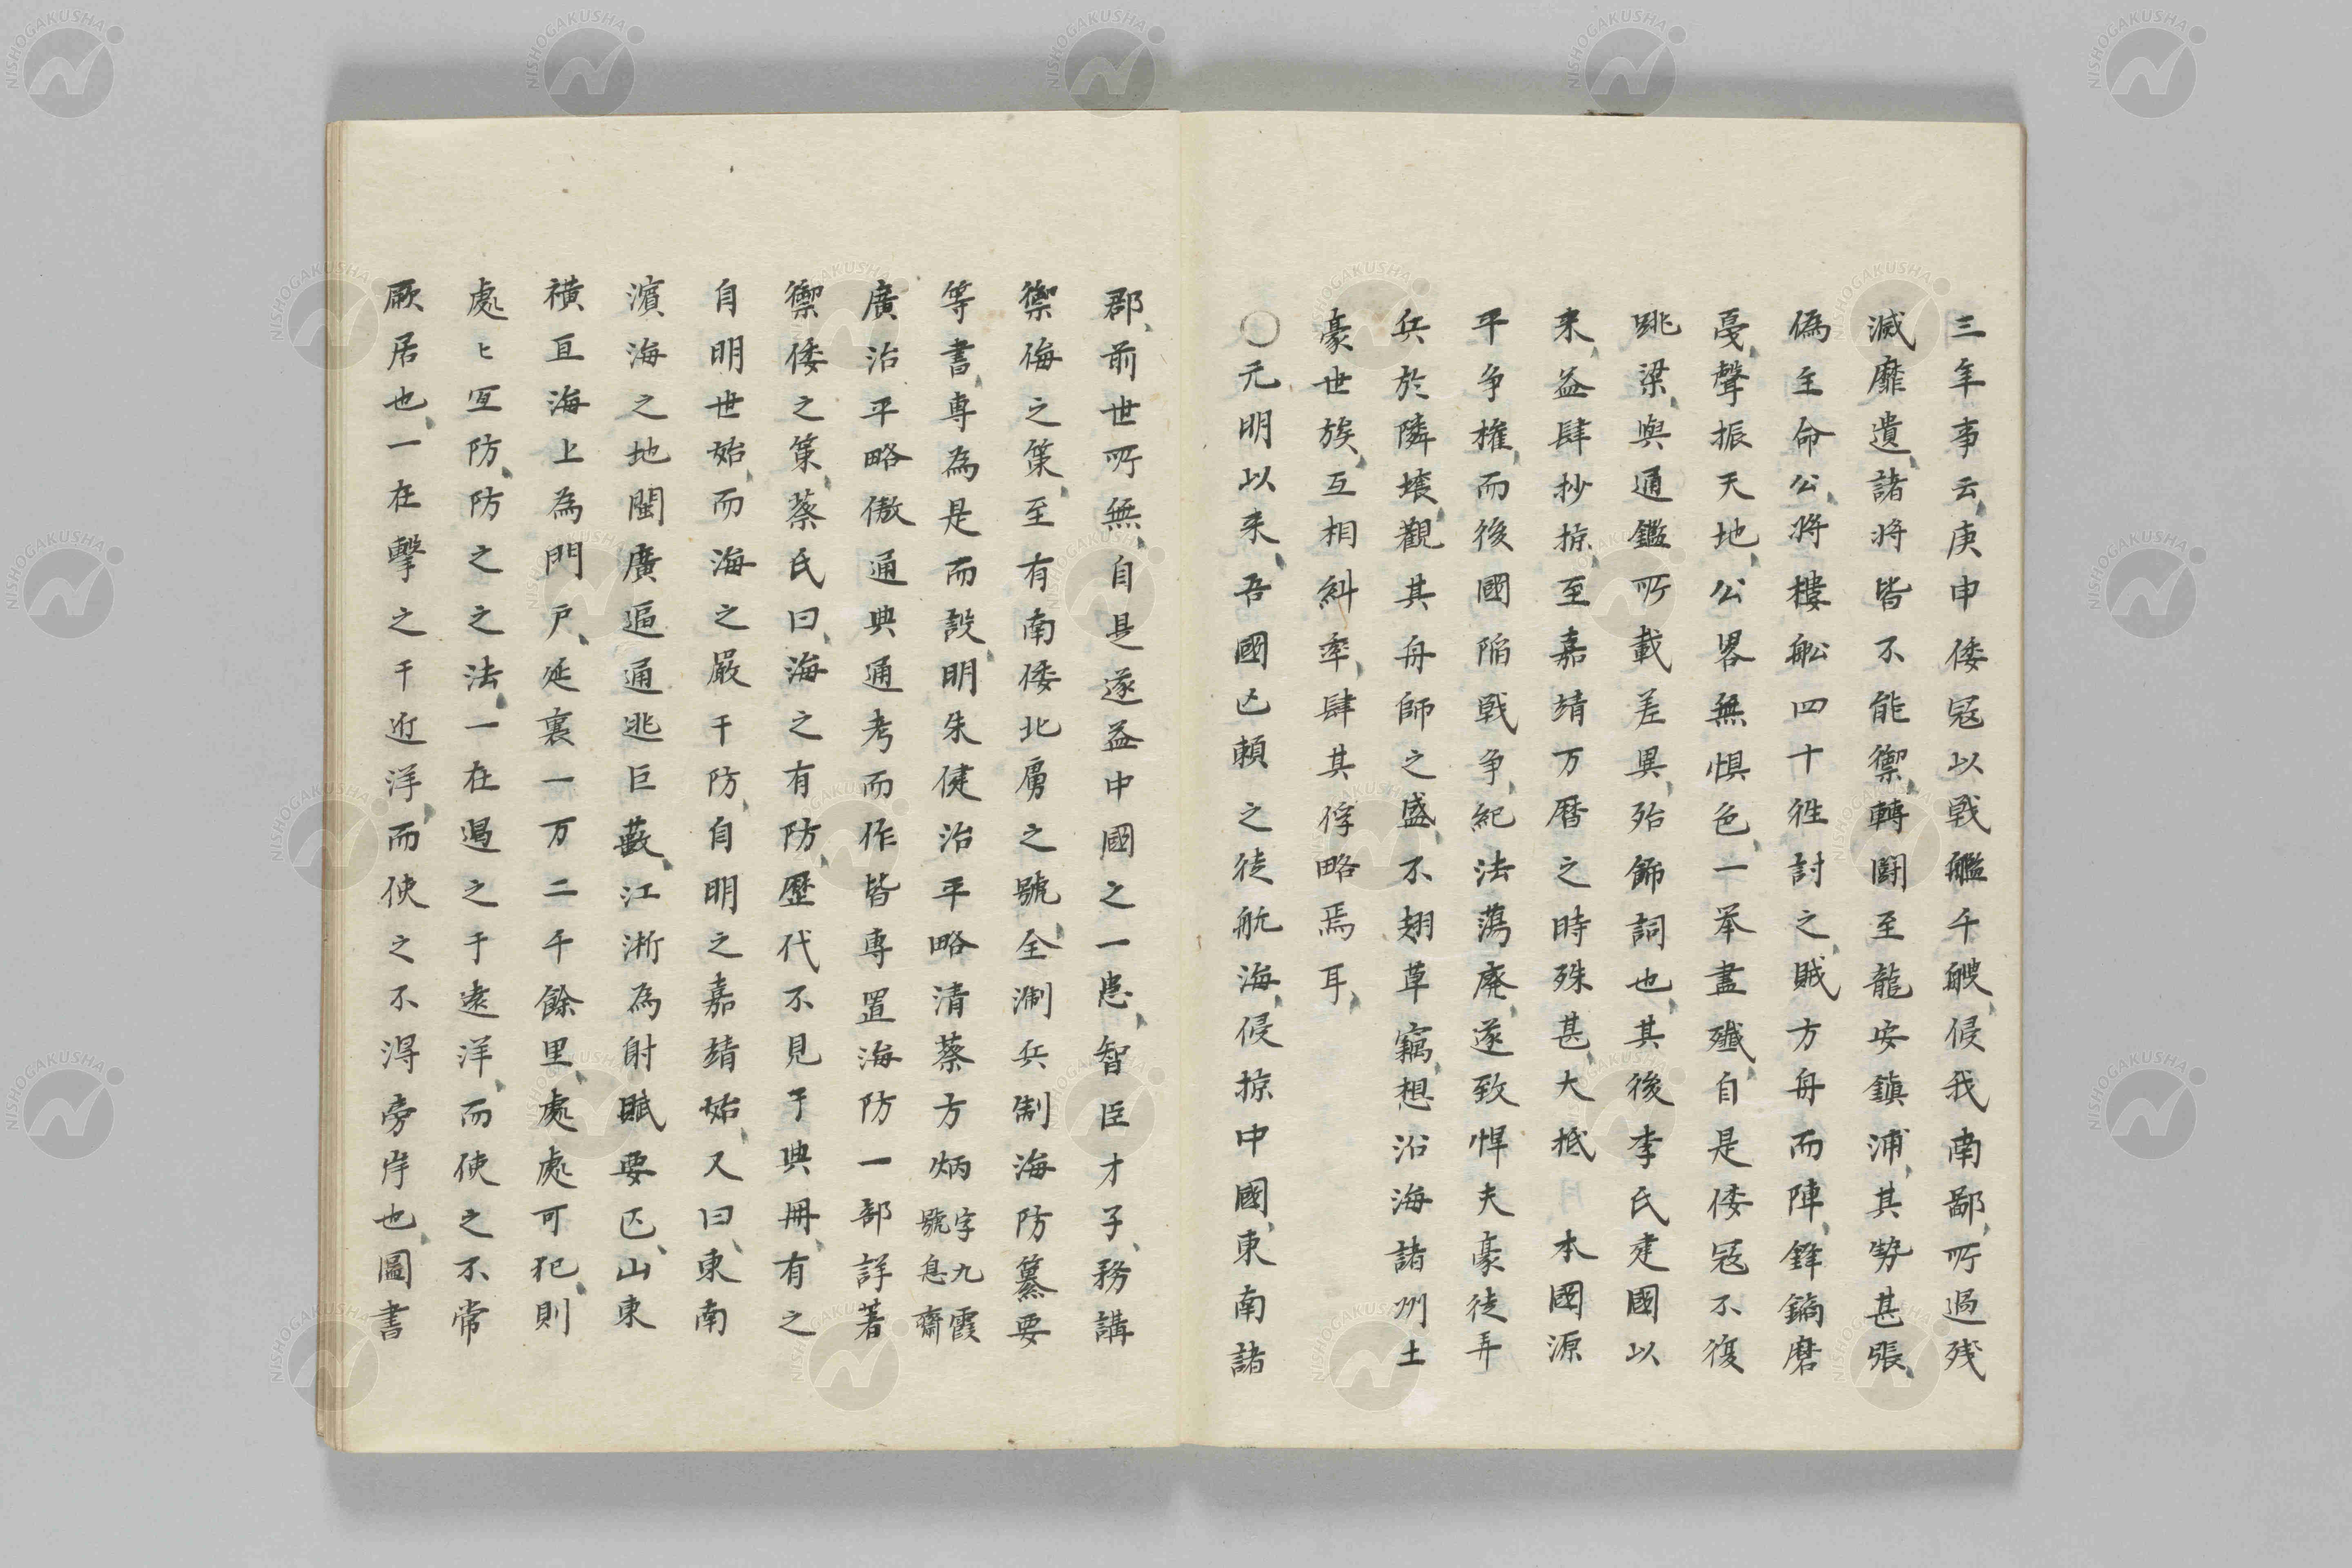 三年事云、庚申倭冦以戦艦千艘、侵我南鄙、所過残
滅靡遺、諸将皆不能禦、轉闘至龍安鎮浦、其勢甚張、
偽主命公、将樓舩四十徃討之、賊方舟而陣、鋒鏑磨
戞、聲振天地、公畧無惧色、一举盡殲、自是倭冦不復
跳梁、與通鑑所載差異、殆飾詞也、其後李氏建國以
来、益肆抄掠、至嘉靖万暦之時殊甚、大抵 本國源
平争権、而後國陥戦争、紀法蕩廃、遂致悍夫豪徒弄
兵於隣壌、觀其舟師之盛、不翅草竊、想沿海諸州土
豪世族、互相糾率、肆其俘略焉耳、
〇元明以来、吾國亡頼之徒航海、侵掠中國、東南諸
郡、前世所無、自是遂益中國之一患、智臣才子、務講
禦侮之策、至有南倭北虜之號、全淛兵制海防纂要
等書、専為是而設、明朱健治平略清蔡方炳字九霞號息齋
廣治平略倣通典通考而作皆専置海防一部詳著
禦倭之策、蔡氏曰、海之有防、歴代不見于典冊、有之
自明世始、而海之嚴于防、自明之嘉靖始、又曰、東南
濱海之地閩廣逼通逃巨藪、江淅為財賦要区、山東
横亘海上為門戸、延袤一万二千餘里、處處可犯、則
處ヒ冝防、防之之法、一在遏之于遠洋、而使之不常
厥居也、一在擊之于近洋、而使之不淂旁岸也、圖書